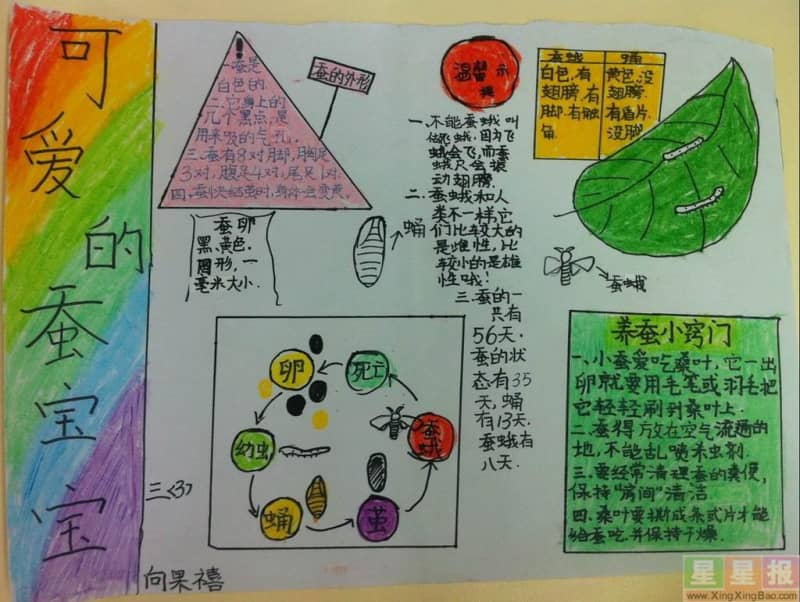 可
爱
的
蚕
宝
宝
一.蚕是
白色的.
二.它身上的
几个黑点,是
用来吸的气孔.
三.蚕有8对脚,胸足
3对,腹足4对,尾足1对.
四.蚕快结茧时,身体会变亮.
蚕的外形
温馨示
提
一.不能蚕蛾叫
做飞蛾,因为飞
蛾会飞,而蚕
蛾只会振
动翅膀.
二.蚕蛾和人
类不一样,它
们比较大的
是雌性,比
较小的是雄
性哦!
三.蚕的一
共有
56天.
蚕的状
态有35
天,蛹
有13天.
蚕蛾有
八天.
蚕蛾
白色,有
翅膀.有
脚.有触
角.
蛹
黄色,没
翅膀.
有盾片.
没脚.
蚕卵
黑、黄色.
圆形,一
毫米大小.
蛹
蚕蛾
卵
死亡
幼虫
蚕蛾
蛹
茧
养蚕小窍门
一.小蚕爱吃桑叶,它一出
卵就要用毛笔或羽毛把
它轻轻刷到桑叶上.
二.蚕得放在空气流通的
地,不能乱喷杀虫剂.
三.要经常清理蚕的粪便,
保持"房间"清洁
四.桑叶要撕成条或片才能
给蚕吃.并保持干燥.
三<3>
向果禧
星星报
www.XingXingBao.com